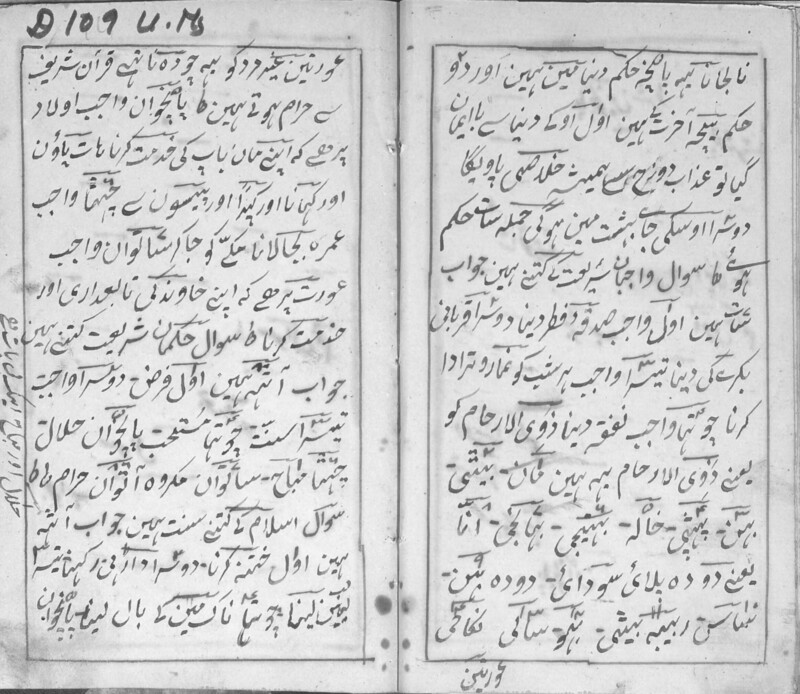 نا لجانا یہہ پانچہ حکم دنیا مین ہین اور دو
حکم بیچہ آخرت کے ہین اول او کے دنیا سے باایمان
گیا تو عذاب دوزخ سے ہمیشہ خلاصی پاویگا
دوسرا اوسکی جاے بہشت مین ہوگی جملہ سات حکم
ہوئے سوال واجبان شریعت کے کتنے ہین جواب
سات ہین اول واجب صدقہ فطر دینا دوسرا قربانی
بکرے کی دینا تیسرا واجب ہر شب کو نماز وتر ادا
کرنا چوتہا واجب نفقہ دینا ذوی الارحام کو
یعنے ذوی الارحام یہہ ہین مان۔ بیٹی۔
بہن۔ پہپی۔ خالہ۔ بہتیجی۔ بہانجی۔ انا
یعنے دودہ پلائی سو دائی۔ دودہ بہن۔
ساس۔ ربیبہ بیٹی۔ بہو۔ سالی نکاحی
عورتین
D 109 U. Ms
عورتین غیر مرد کو یہہ چودہ ناتے قرآن شریف
سے حرام ہوتے ہین پانچوان واجب اولاد
پر ہے کہ اپنے مان باپ کی خدمت کرنا ہات پاؤن
اور کہانا اور کپڑا اور پیسون سے چھٹا واجب
عمرہ بجا لانا مکے کو جا کر ساتوان واجب
عورت پر ہے کہ اپنے خاوند کی تابعداری اور
خدمت کرنا سوال حکمان شریعت کتنے ہین
جواب آٹہ ہین اول فرض۔ دوسرا واجب
تیسرا سنت۔ چوتہا مستحب پانچوان حلال
چھٹا مباح۔ ساتوان مکروہ آٹوان حرام
سوال اسلام کے کتنے سنت ہین جواب آٹہ
ہین اول ختنہ کرنا۔ دوسرا داڑی رکہنا تیسرا
لبین لینا چوتہا ناک مین کے بال لینا پانچوان
حلال اور مباح ایک